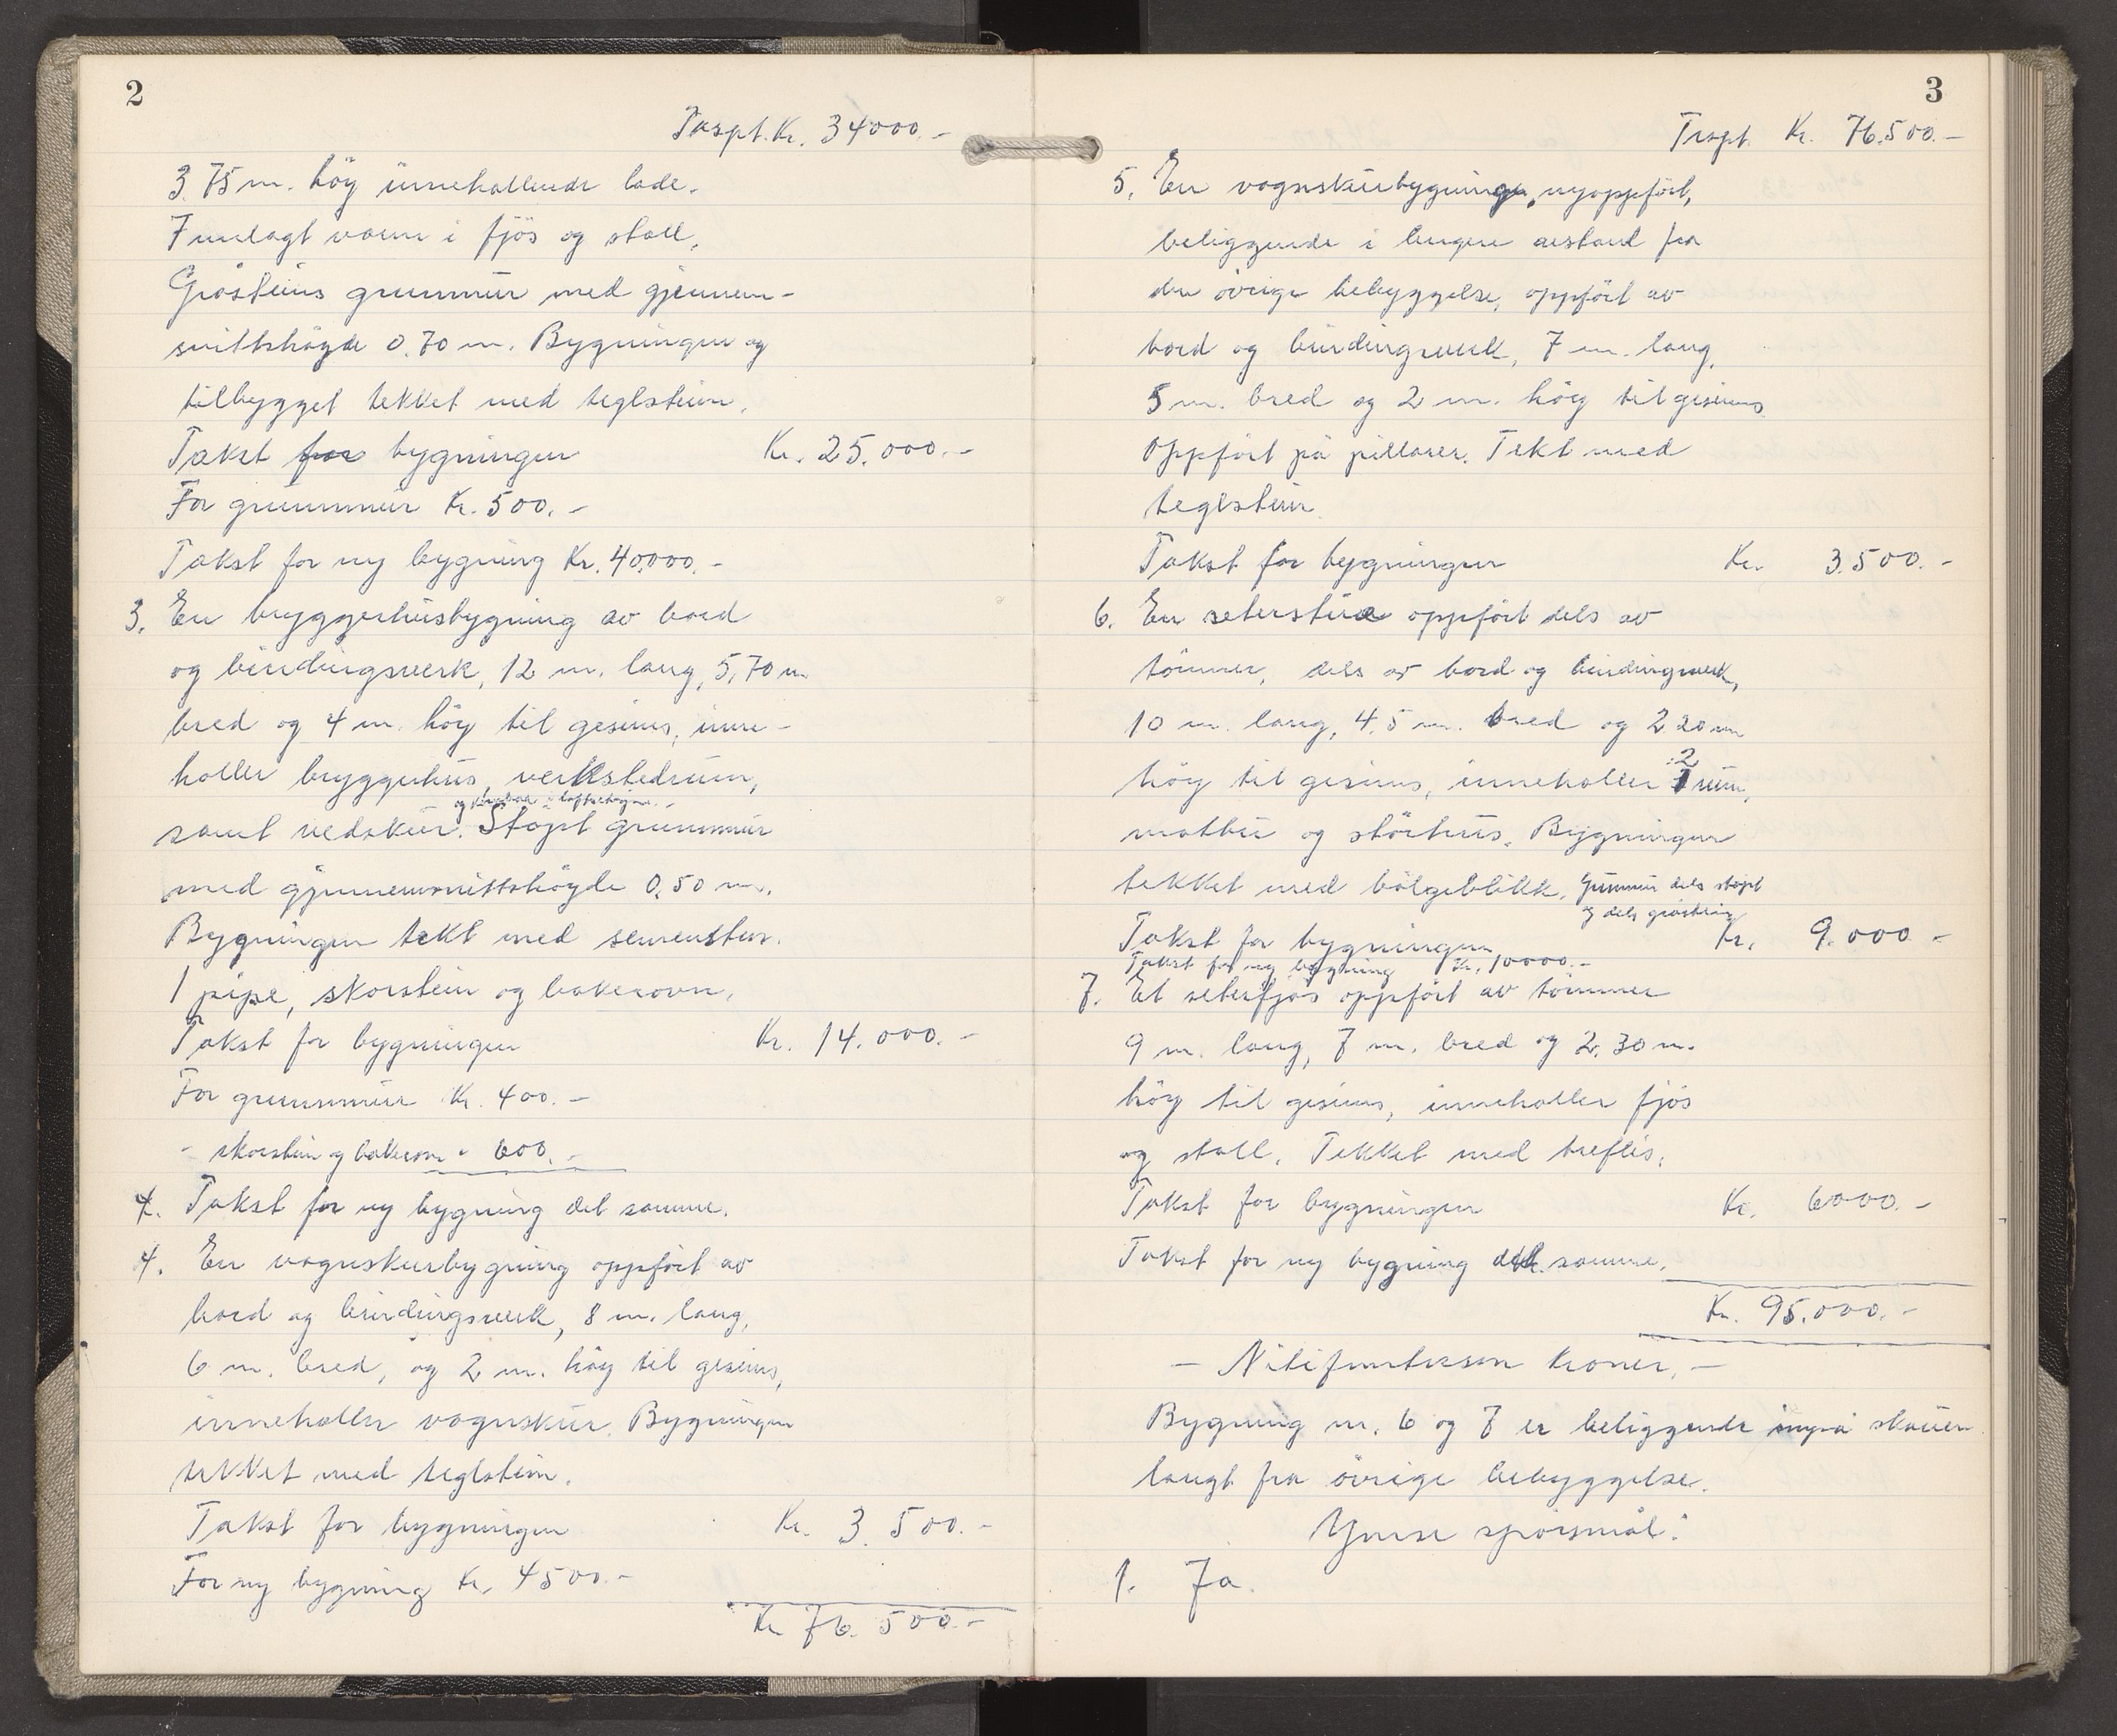 2
Trspt. Kr. 34000.-
3.75 m. höy inneholdende lade.
Innlagt vann i fjös og stall.
Gråsteins grunnmur med gjennem-
snittshöyde 0.70 m. Bygningen og
tilbygget tekket med teglstein.
Takst for bygningen Kr. 25.000.-
For grunnmur Kr. 500.-
Takst for ny bygning Kr. 40000.-
3. En bryggerhusbygning av bord
og bindingsverk, 12 m. lang, 5,70 m
bred og 4 m. höy til gesims, inne-
holler bryggerhus, verkstedrum,
samt vedskur. Stöpt grunnmur
med gjennemsnittshöyde 0,50 m.
Bygningen tekt med sementsten.
1 pipe, skorstein og bakerovn.
Takst for bygningen Kr. 14.000.-
For grunnmur Kr. 400.-
" skorstein og bakerovn " 600.-
4. Takst for ny bygning det samme.
4. En vognskurbygning oppfört av
bord og bindingsverk, 8 m. lang,
6 m. bred, og 2 m. höy til gesims,
inneholler vognskur. Bygningen
tekket med teglstein.
Takst for bygningen Kr. 3.500.-
For ny bygning Kr. 4500.-
Kr. 76.500.-
3
Trspt. Kr. 76.500.-
5. En vognskurbygning, nyoppfört,
beliggende i lengere avstand fra
den övrige bebyggelse, oppfört av
bord og bindingsverk, 7 m. lang,
5 m. bred og 2 m. höy til gesims
Oppfört på pillarer. Tekt med
teglstein.
Takst for bygningen Kr. 3.500.-
6. En seterstue oppfört dels av
tömmer, dels av bord og bindingsverk,
10 m. lang, 4,5 m. bred og 2.20 m
höy til gesims, inneholler 2 rum,
matbu og störhus. Bygningen
tekket med bölgeblikk. Grunnmur dels stöpt
og dels gråstein
Takst for bygningen Kr. 9.000.-
Takst for ny bygning Kr. 10000.-
7. Et seterfjös oppfört av tömmer
9 m. lang, 7 m. bred og 2.30 m.
höy til gesims, inneholler fjös
og stall. Tekket med treflis.
Takst for bygningen Kr. 6000.-
Takst for ny bygning det samme.
Kr. 95.000.-
- Nitifemtusen kroner. -
Bygning nr. 6 og 7 er beliggende innpå skauen
langt fra övrige bebyggelse.
Ymse spörsmål:
1. Ja.